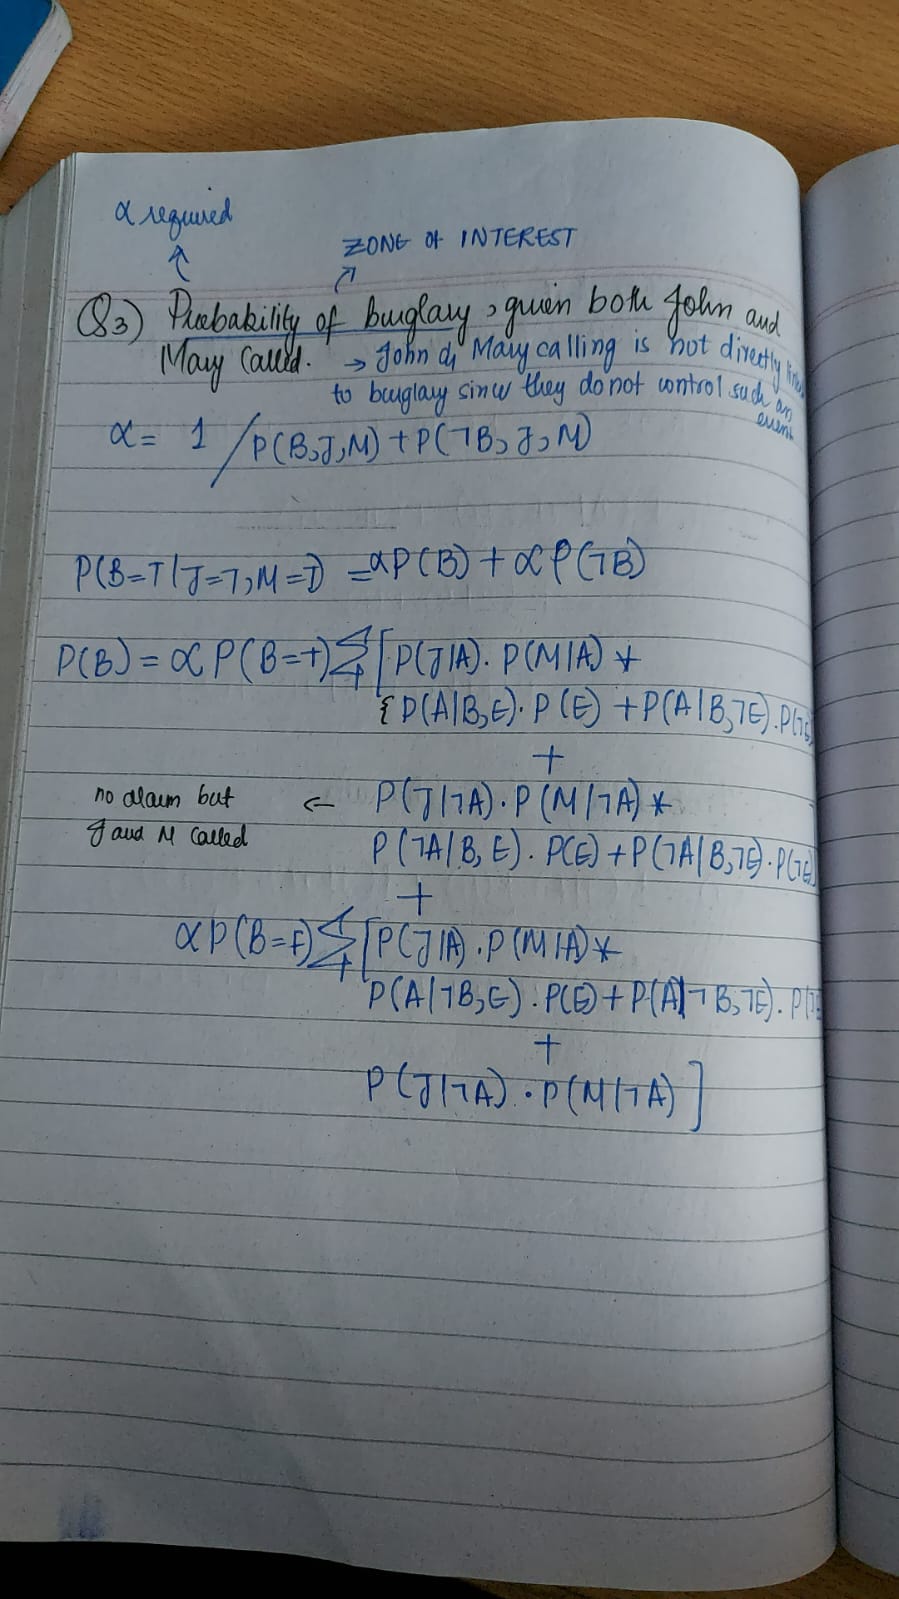 α required
ZONE of INTEREST
Q3) Probability of burglary, given both John and
Mary Called. → John & Mary calling is not directly
to burglary since they do not control such an
event
α = 1 / P(B,J,M) + P(¬B,J,M)
P(B=T|J=T,M=T) = αP(B) + αP(¬B)
P(B) = α P(B=T) Σ [P(J|A). P(M|A) *
{P(A|B,E). P(E) + P(A|B,¬E).P(¬E
+
no alarm but ← P(J|¬A).P(M|¬A) *
J and M called P(¬A|B,E). P(E) + P(¬A|B,¬E).P(¬E
+
αP(B=F) Σ [P(J|A).P(M|A) *
P(A|¬B,E).P(E) + P(A|¬B,¬E). P(¬E
+
P(J|¬A).P(M|¬A)]